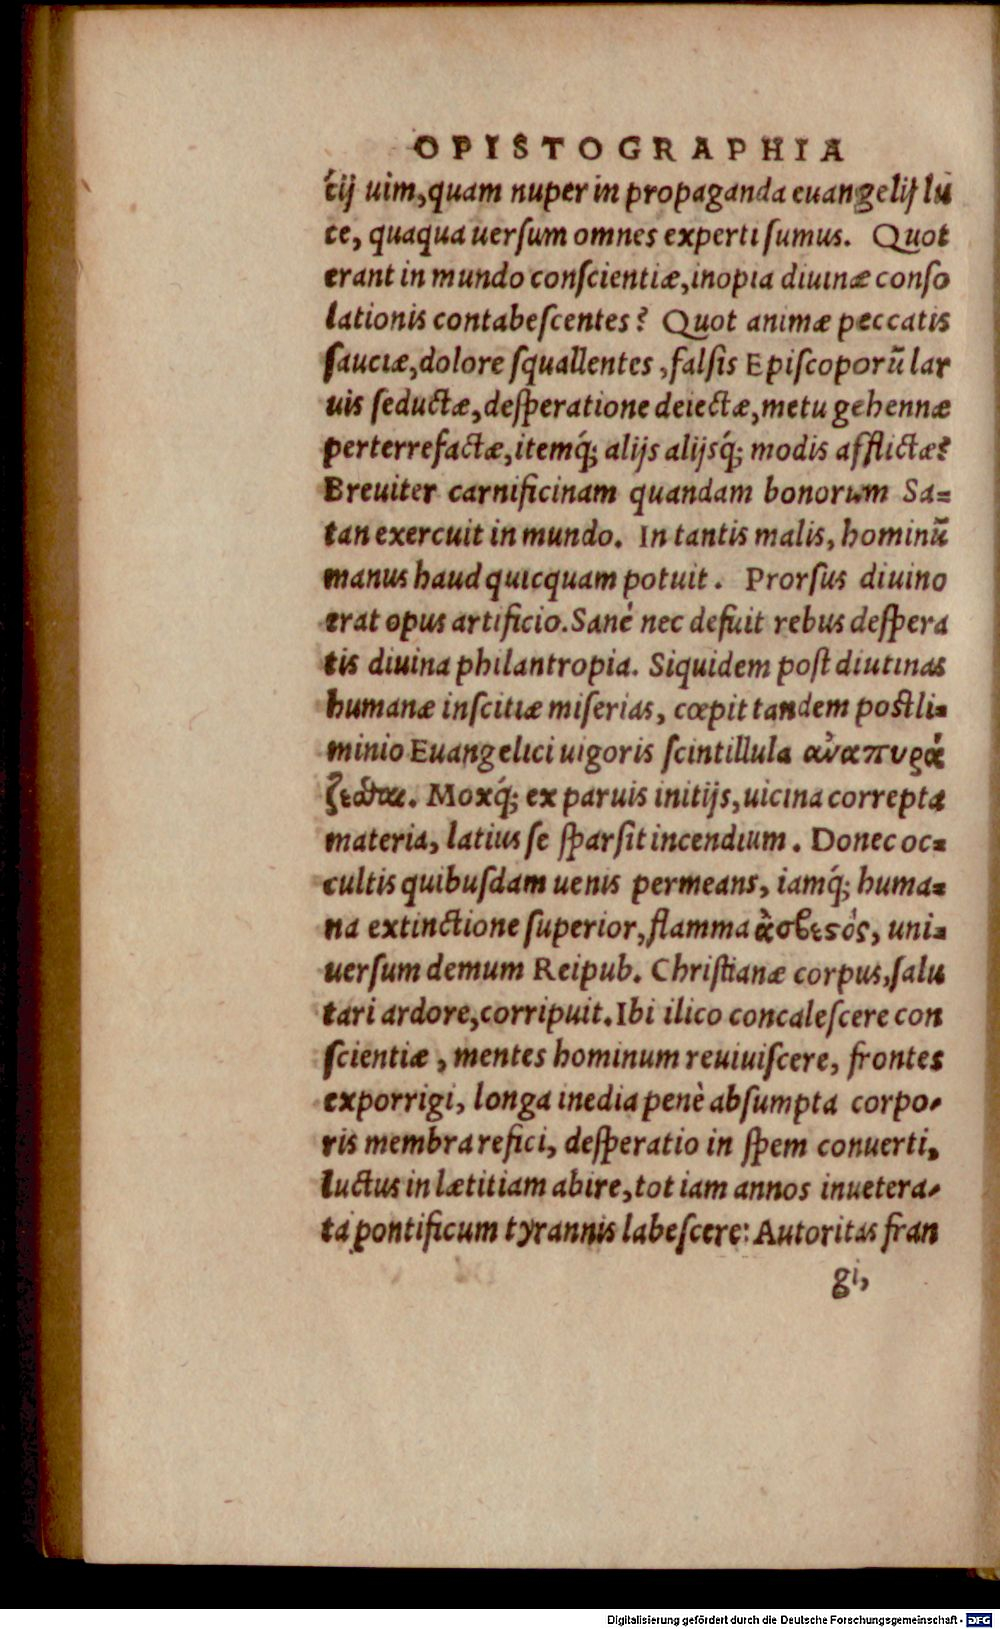 OPISTOGRAPHIA
cij uim, quam nuper in propaganda euangelij lu
ce, quaqua uersum omnes experti sumus. Quot
erant in mundo conscientiæ, inopia diuinæ conso
lationis contabescentes? Quot animæ peccatis
sauciæ, dolore squallentes, falsis Episcoporũ lar
uis seductæ, desperatione deiectæ, metu gehennæ
perterrefactæ, itemq́; alijs alijsq́; modis afflictæ?
Breuiter carnificinam quandam bonorum Sa=
tan exercuit in mundo. In tantis malis, hominũ
manus haud quicquam potuit. Prorsus diuino
erat opus artificio. Sanè nec defuit rebus despera
tis diuina philantropia. Siquidem post diutinas
humanæ inscitiæ miserias, cœpit tandem postli=
minio Euangelici uigoris scintillula ἀναπυρά
ζεσθαι. Moxq́; ex paruis initijs, uicina correpta
materia, latius se sparsit incendium. Donec oc=
cultis quibusdam uenis permeans, iamq́; huma=
na extinctione superior, flamma ἄσβεστός, uni=
uersum demum Reipub. Christianæ corpus, salu
tari ardore, corripuit. Ibi ilico concalescere con
scientiæ, mentes hominum reuiuiscere, frontes
exporrigi, longa inedia penè absumpta corpo=
ris membra refici, desperatio in spem conuerti,
luctus in lætitiam abire, tot iam annos inuetera=
ta pontificum tyrannis labescere: Autoritas fran
gi,
Digitalisierung gefördert durch die Deutsche Forschungsgemeinschaft - DFG